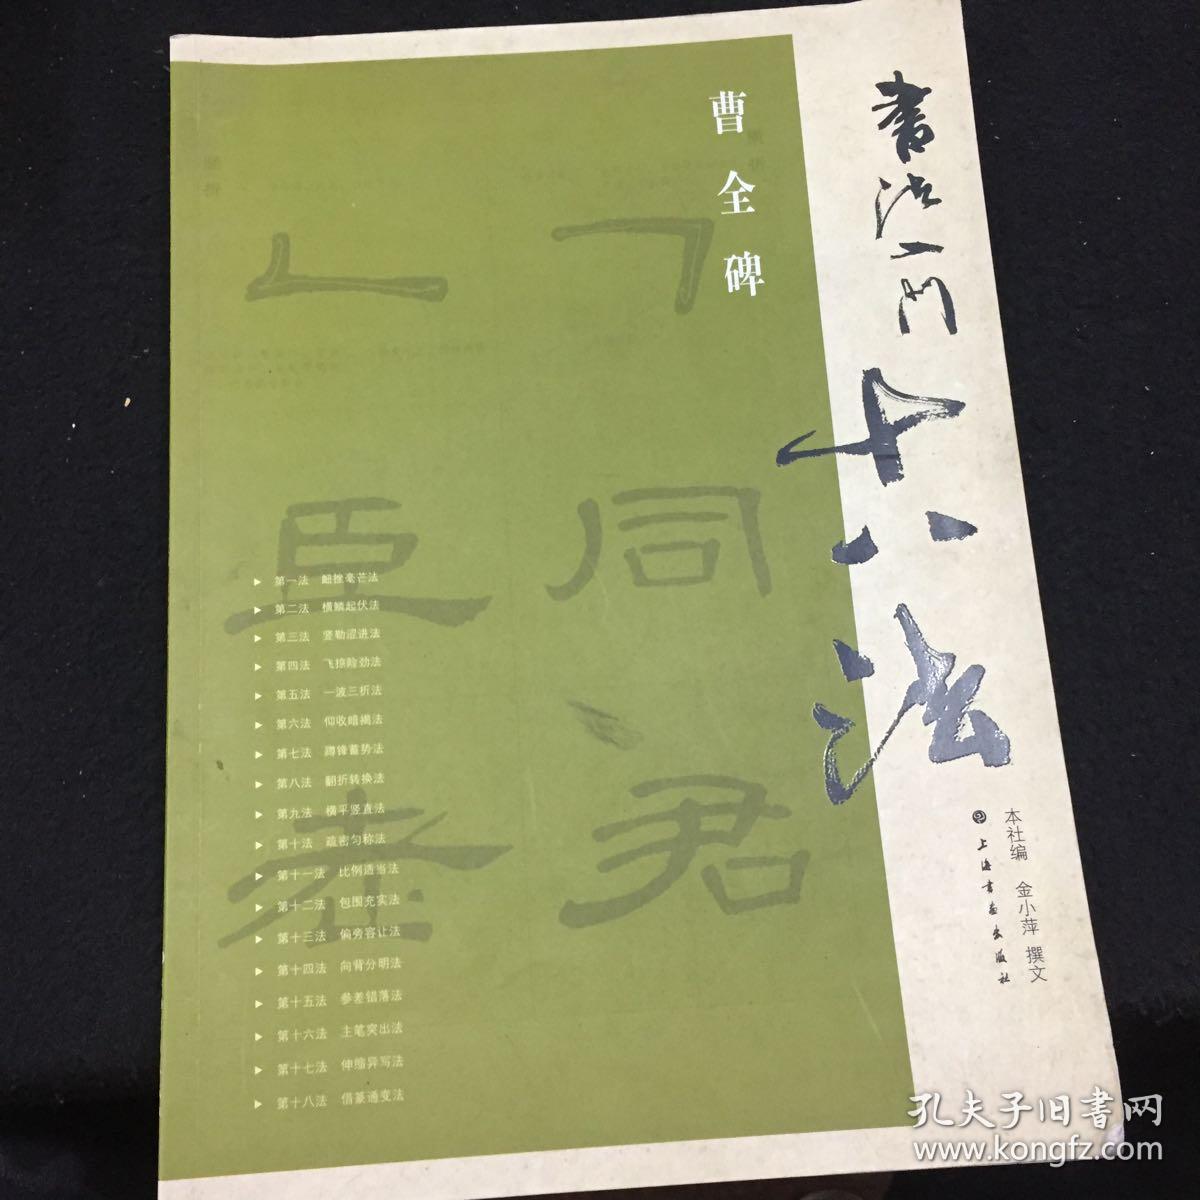 书法入门
十八法
曹全碑
本社编 金小萍 撰文
上海书画出版社
同
臣
君
▶ 第一法 衄挫毫芒法
▶ 第二法 横鳞起伏法
▶ 第三法 竖勒涩进法
▶ 第四法 飞掠险劲法
▶ 第五法 一波三折法
▶ 第六法 仰收暗揭法
▶ 第七法 蹲锋蓄势法
▶ 第八法 翻折转换法
▶ 第九法 横平竖直法
▶ 第十法 疏密匀称法
▶ 第十一法 比例适当法
▶ 第十二法 包围充实法
▶ 第十三法 偏旁容让法
▶ 第十四法 向背分明法
▶ 第十五法 参差错落法
▶ 第十六法 主笔突出法
▶ 第十七法 伸缩异写法
▶ 第十八法 借篆通变法
孔夫子旧书网
www.kongfz.com